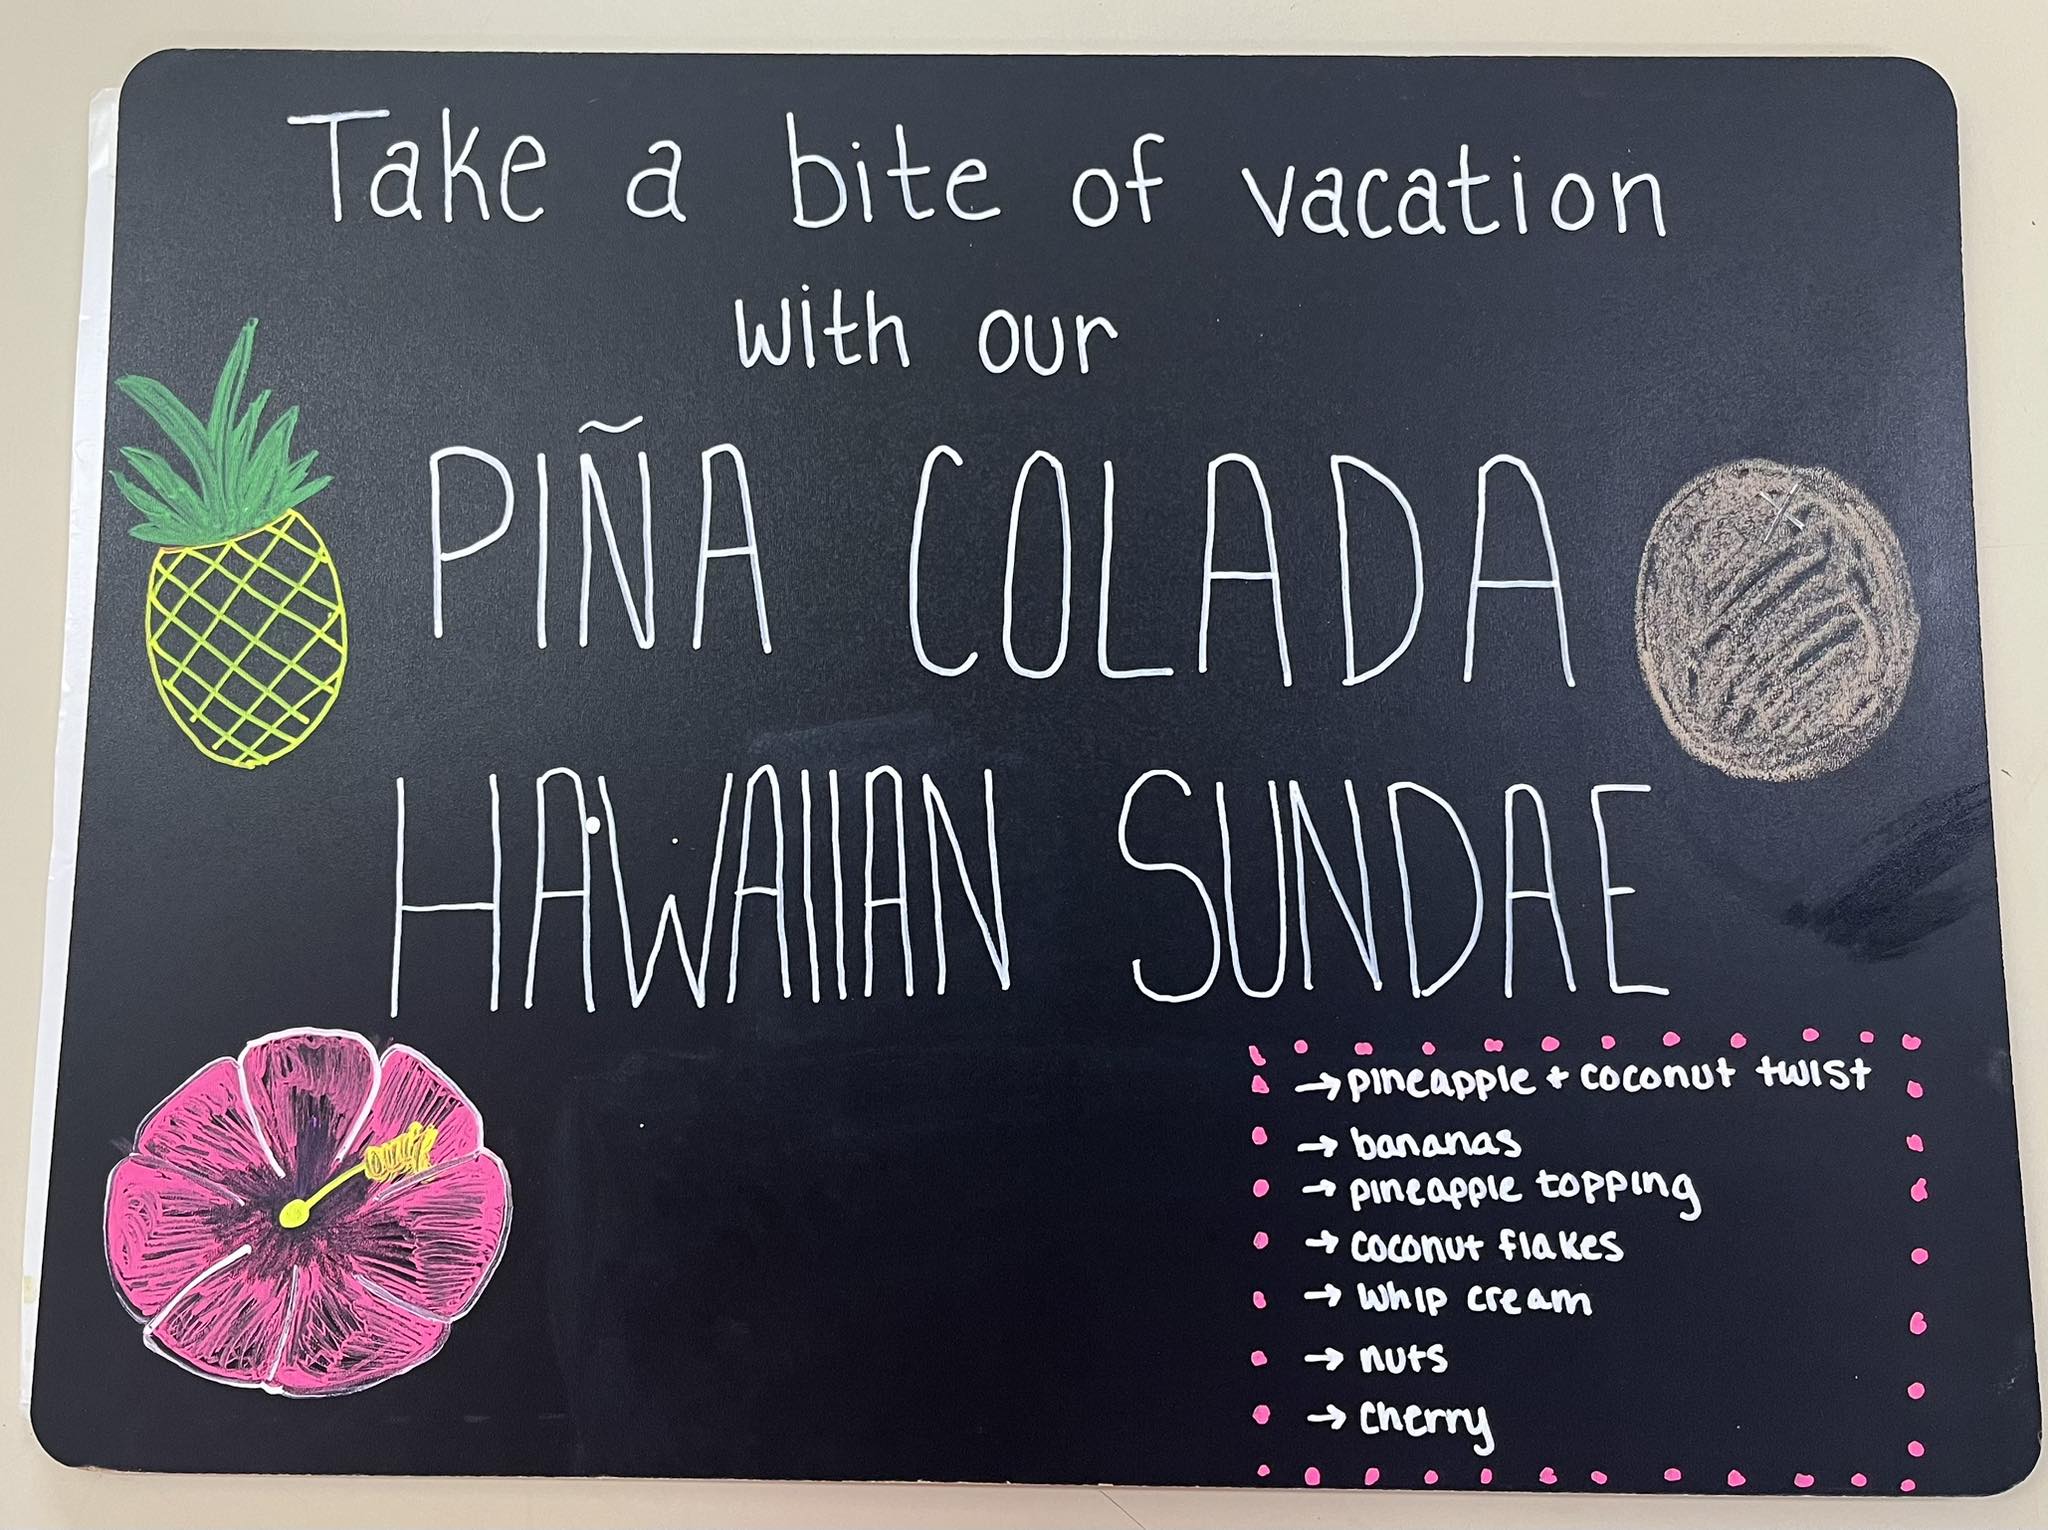 Take a bite of vacation
with our
PIÑA COLADA
HAWAIIAN SUNDAE
→ pineapple + coconut twist
→ bananas
→ pineapple topping
→ coconut flakes
→ whip cream
→ nuts
→ cherry